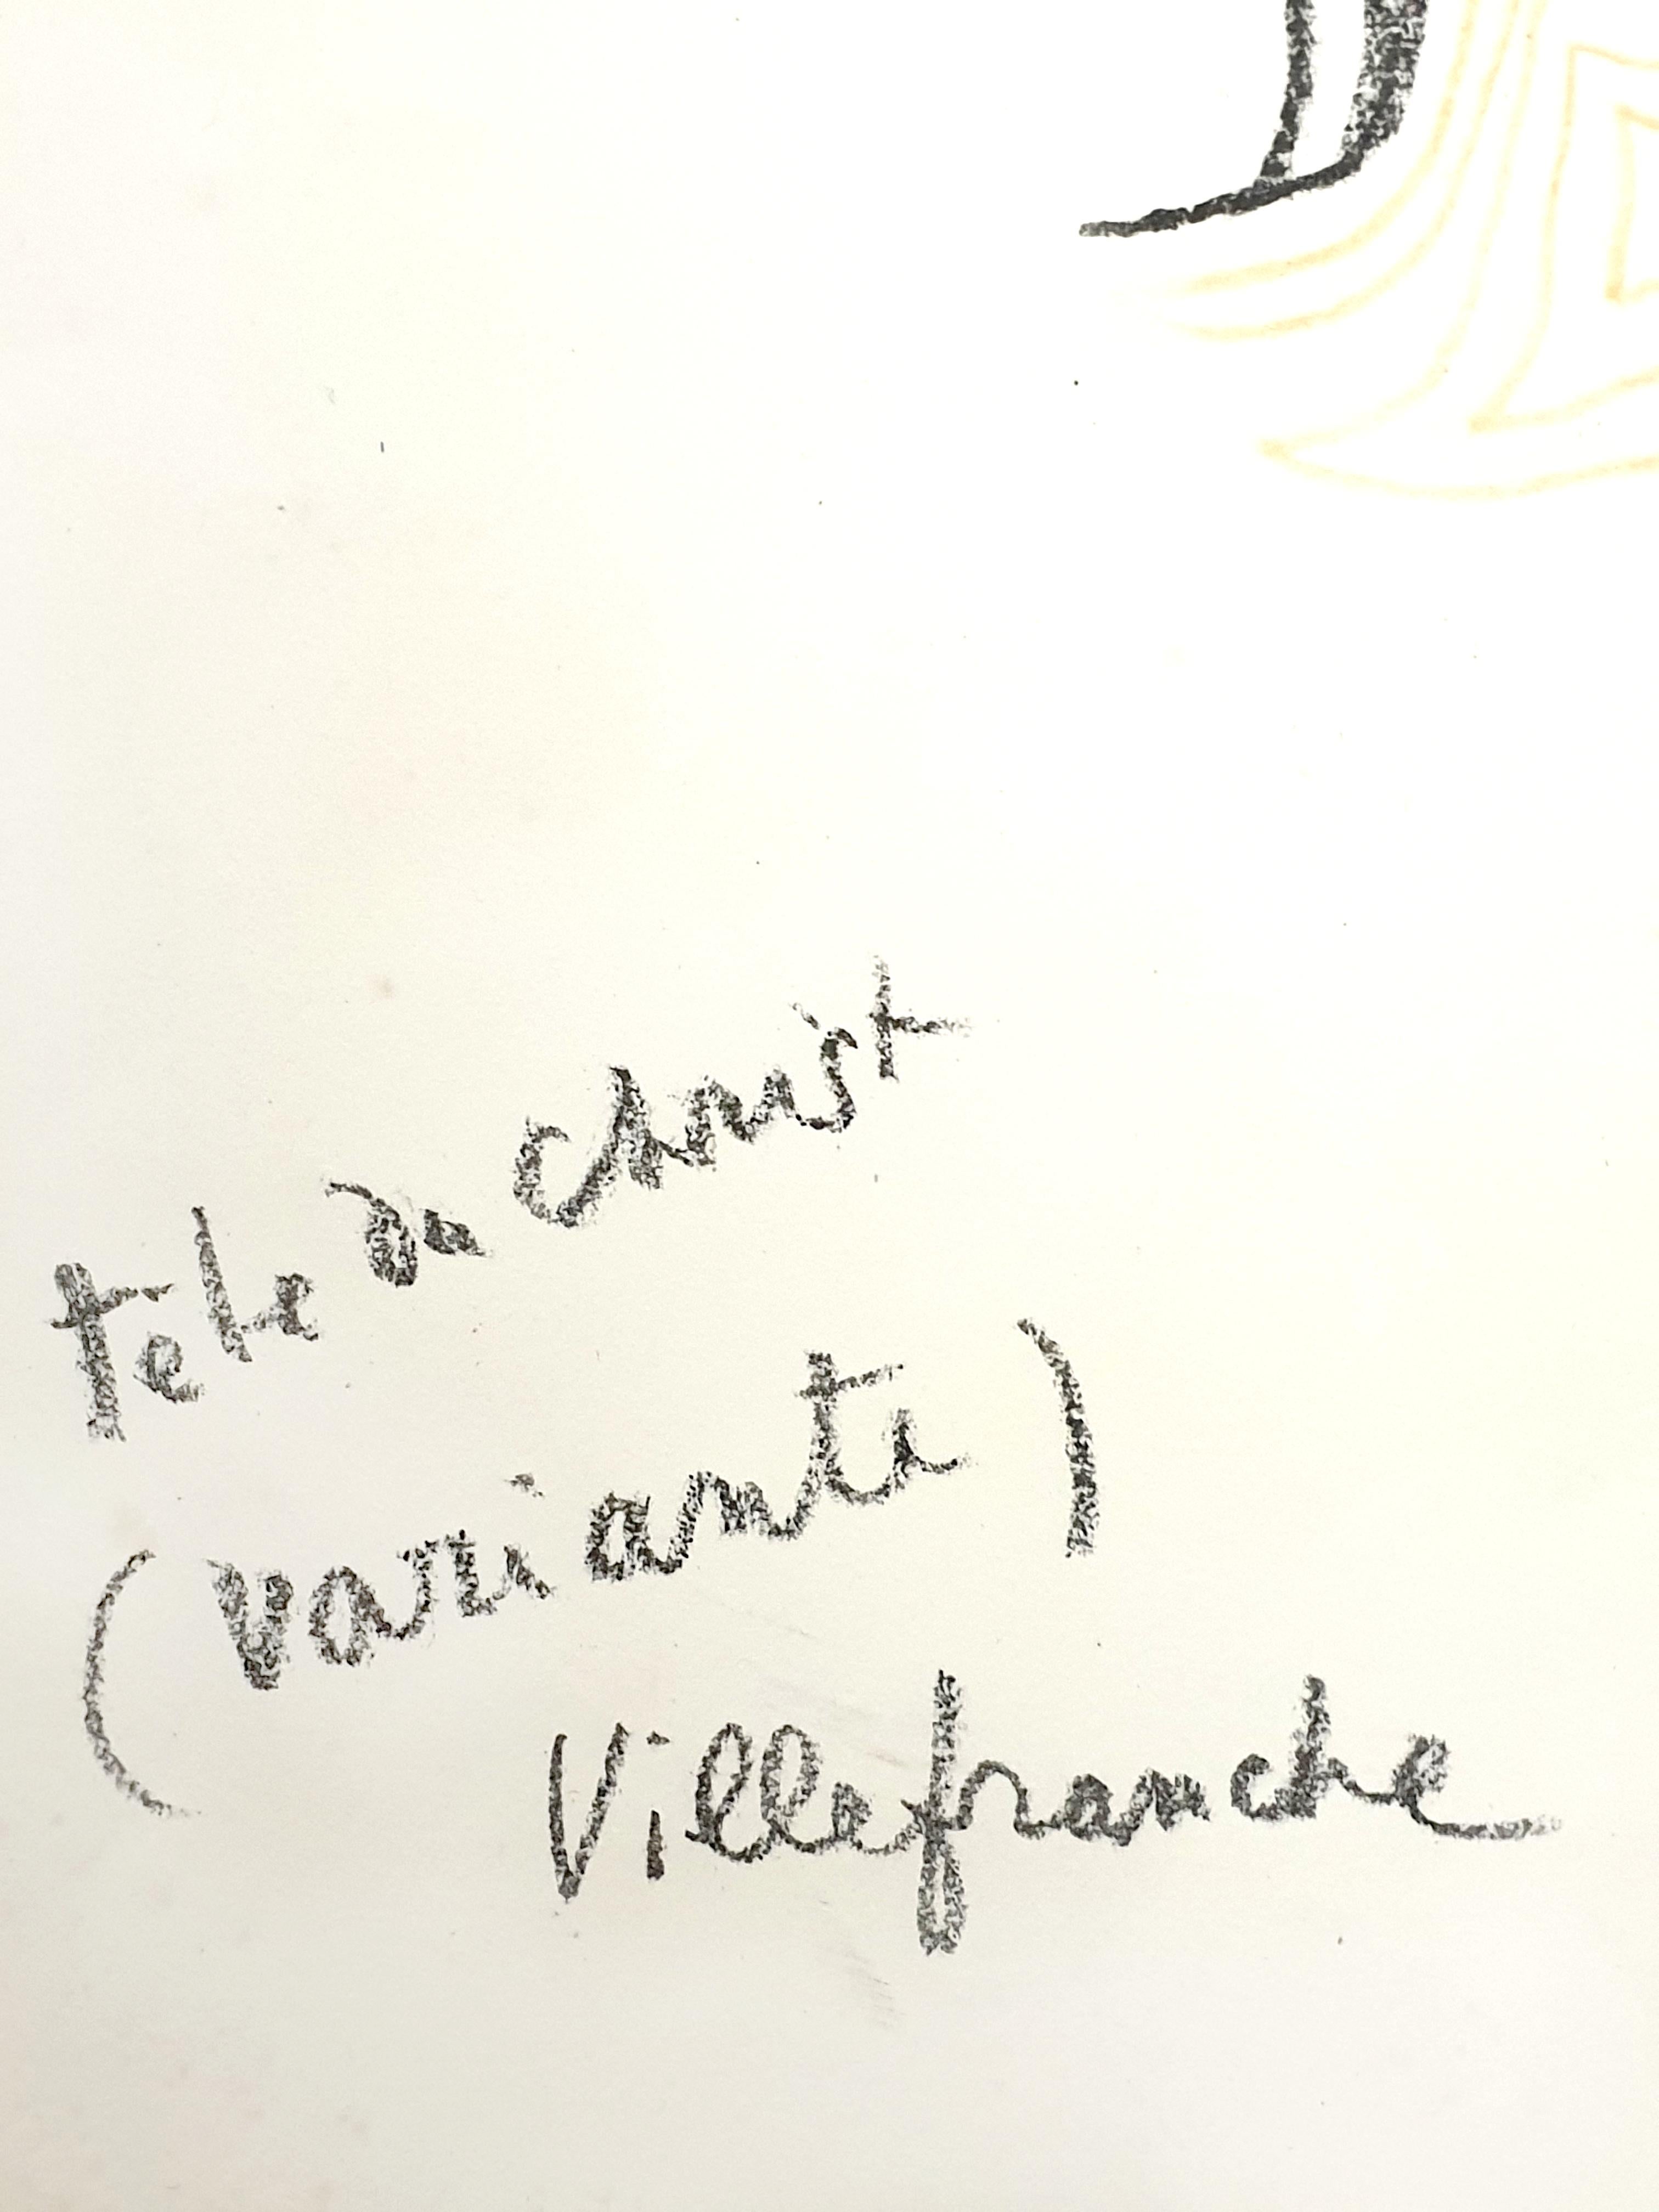 tête du christ
(variante)
Villefranche